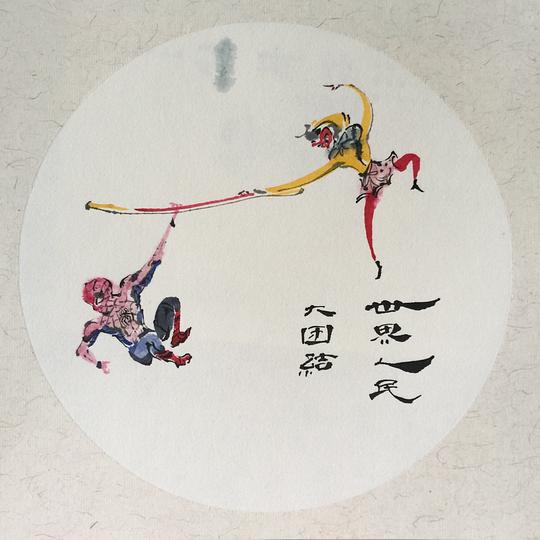 世界人民
大团結